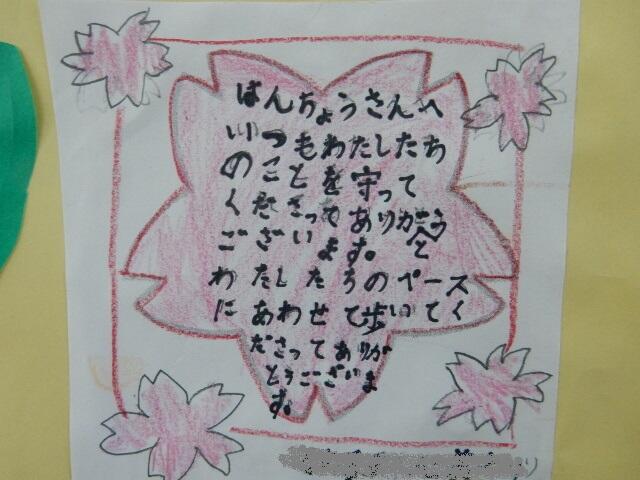 はんちょうさんへ
いつもわたしたち
のことを守って
くださってありがとう
ございます。
わたしたちのペース
にあわせて歩いてく
ださってありが
とうございま
す。